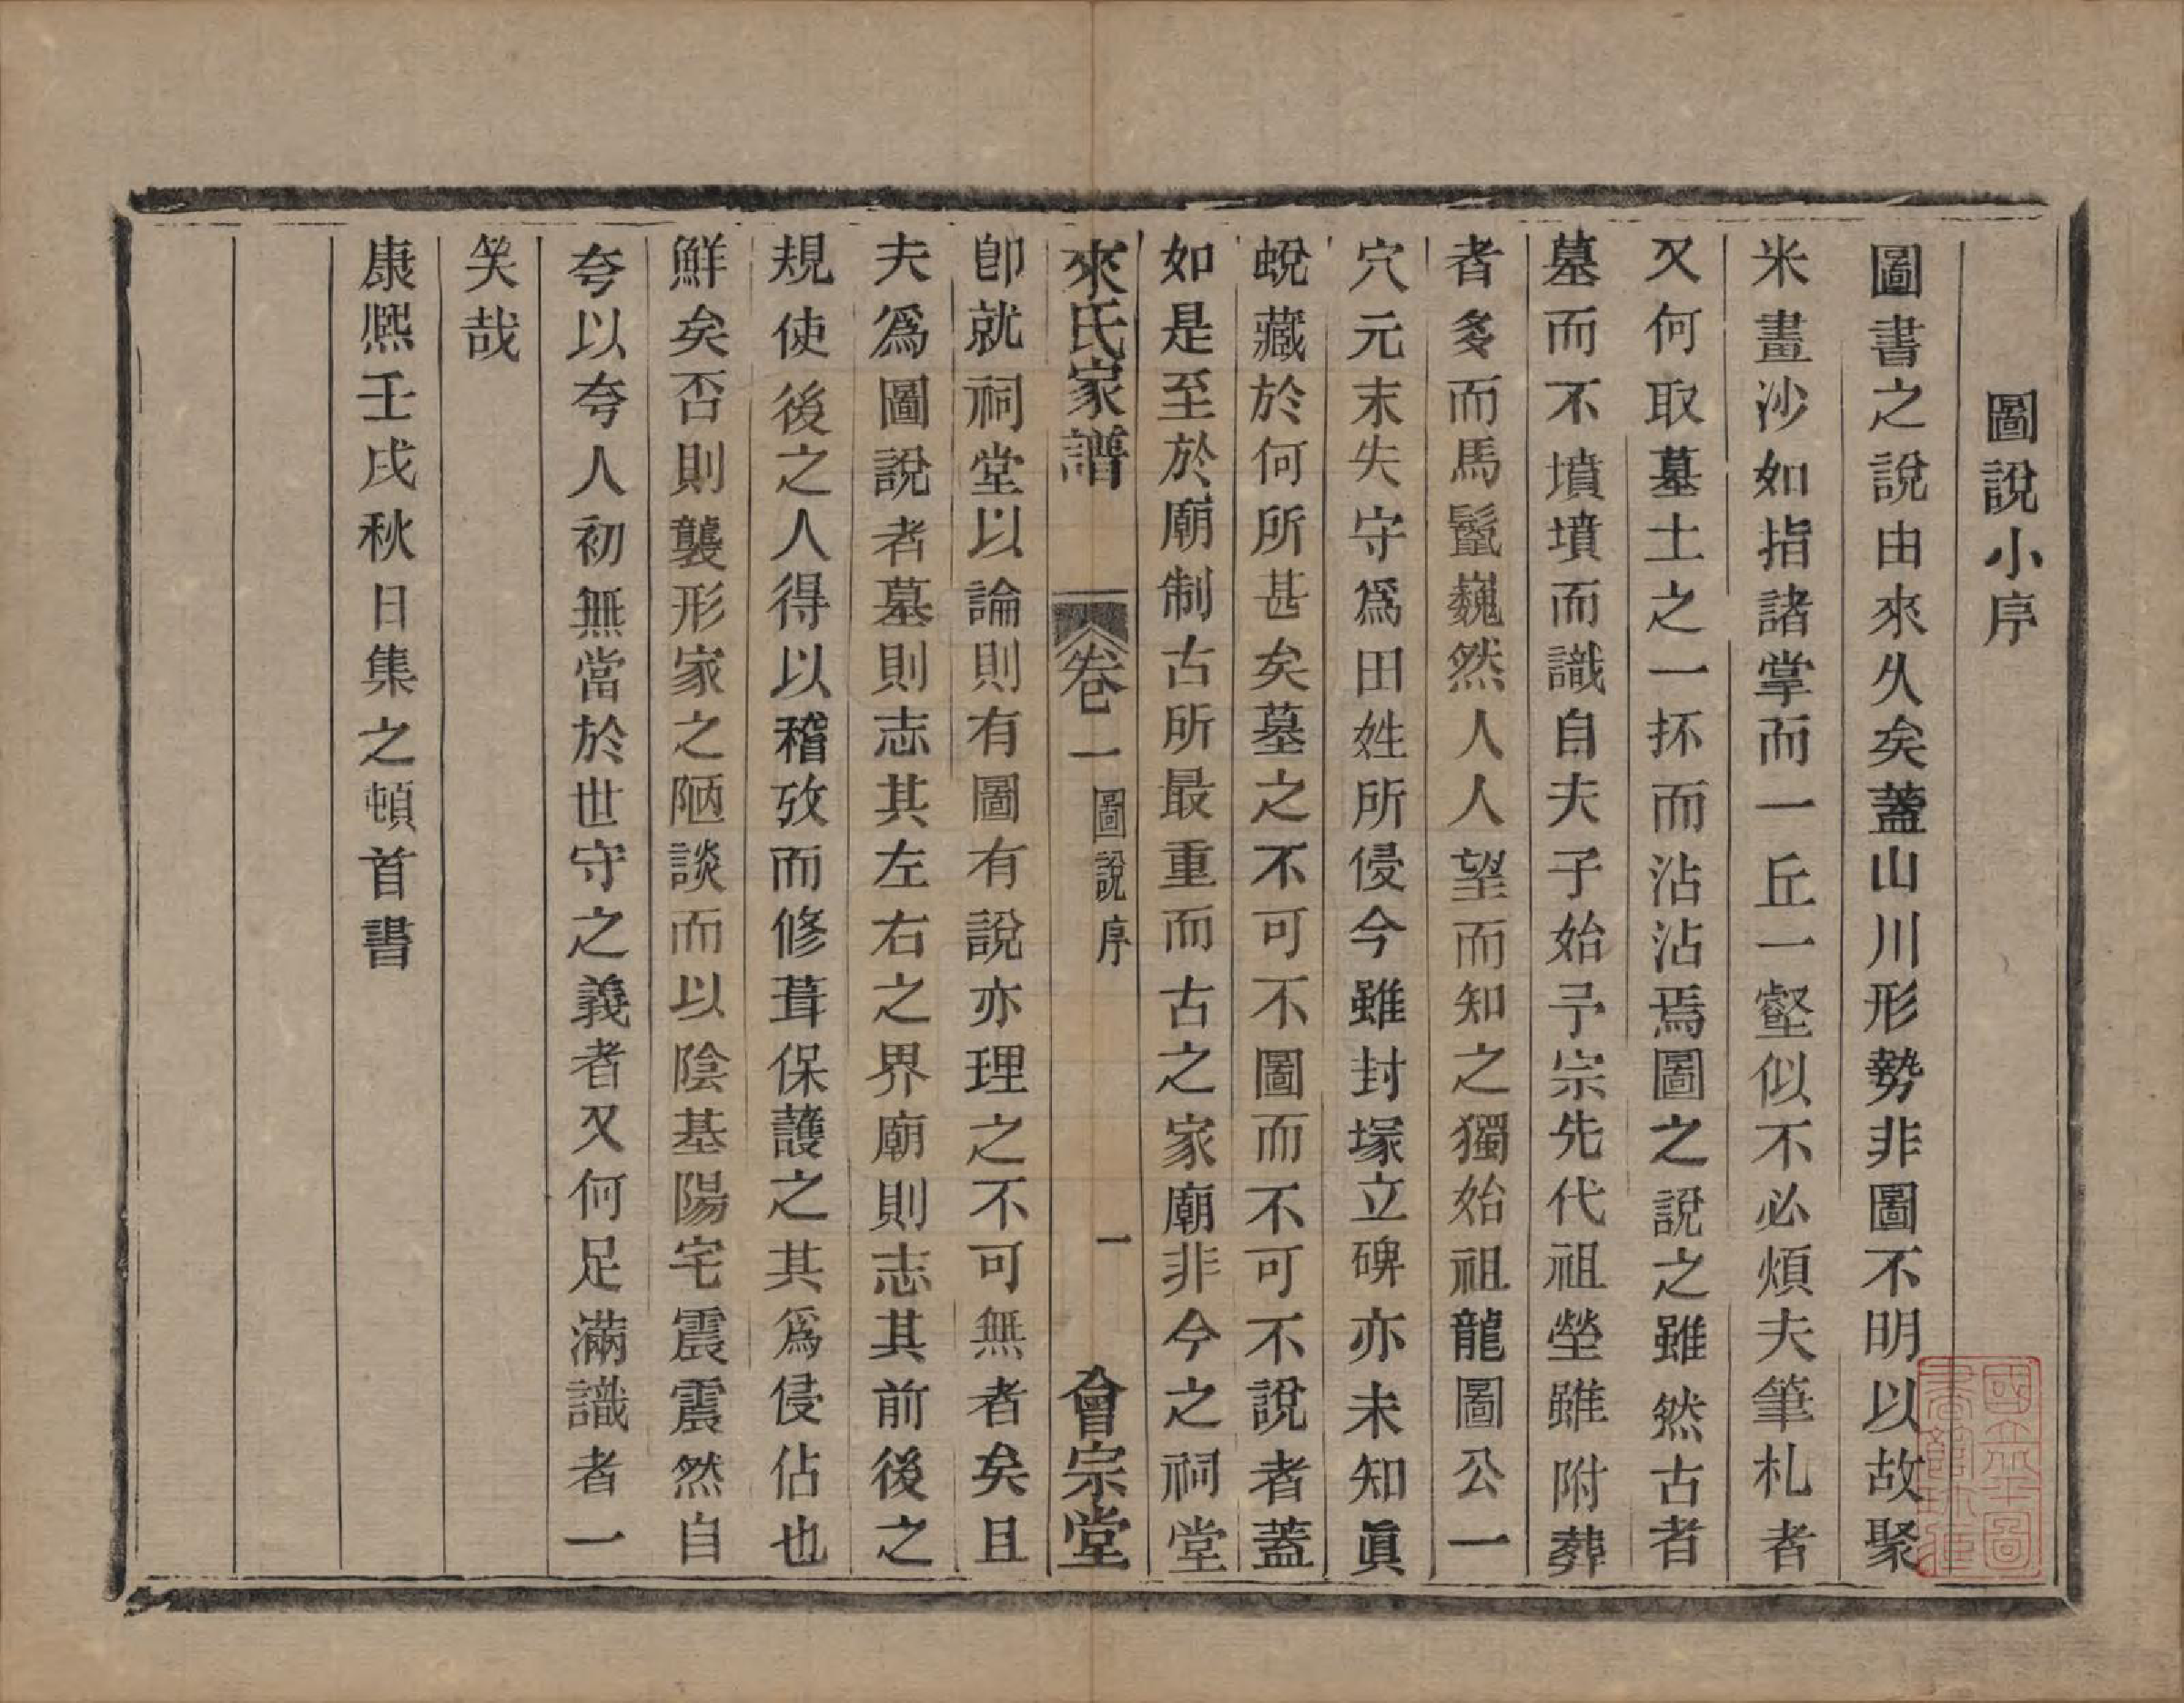 圖說小序
圖書之說由來久矣蓋山川形勢非圖不明以故聚
米畫沙如指諸掌而一丘一壑似不必煩夫筆札者
又何取墓土之一抔而沾沾焉圖之說之雖然古者
墓而不墳墳而識自夫子始予宗先代祖塋雖附葬
者多而馬鬣巍然人人望而知之獨始祖龍圖公一
穴元末失守爲田姓所侵今雖封塚立碑亦未知眞
蛻藏於何所甚矣墓之不可不圖而不可不說者蓋
如是至於廟制古所最重而古之家廟非今之祠堂
來氏家譜 卷一 圖說序 一 會宗堂
卽就祠堂以論則有圖有說亦理之不可無者矣且
夫爲圖說者墓則志其左右之界廟則志其前後之
規使後之人得以稽攷而修葺保護之其爲侵佔也
鮮矣否則襲形家之陋談而以陰基陽宅震震然自
夸以夸人初無當於世守之義者又何足滿識者一
笑哉
康熙壬戌秋日集之頓首書
國立北平圖
書館珍藏